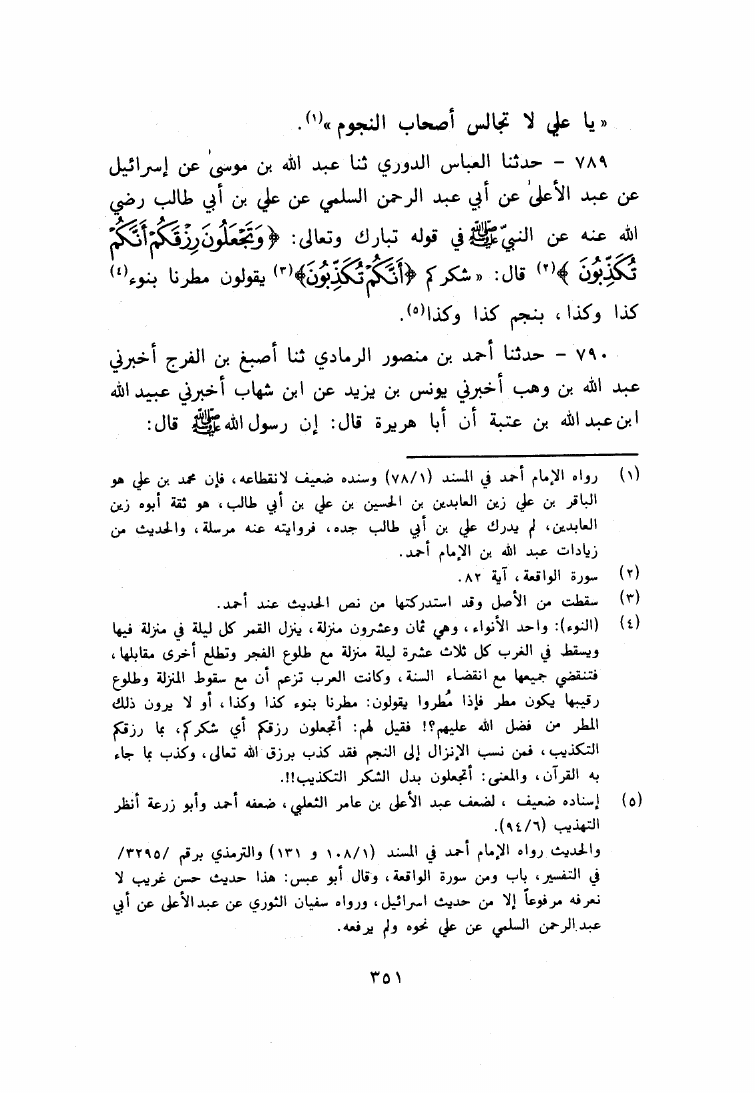 « يا علي لا تجالس أصحاب النجوم »(١).
٧٨٩ - حدثنا العباس الدوري ثنا عبد الله بن موسىٰ عن إسرائيل
عن عبد الأعلىٰ عن أبي عبد الرحمن السلمي عن علي بن أبي طالب رضي
الله عنه عن النبيّ ﷺ في قوله تبارك وتعالى: ﴿وَتَجْعَلُونَ رِزْقَكُمْ أَنَّكُمْ
تُكَذِّبُونَ﴾(٢) قال: « شكركم ﴿أَنَّكُمْ تُكَذِّبُونَ﴾(٣) يقولون مطرنا بنوء(٤)
كذا وكذا، بنجم كذا وكذا(٥).
٧٩٠ - حدثنا أحمد بن منصور الرمادي ثنا أصبغ بن الفرج أخبرني
عبد الله بن وهب أخبرني يونس بن يزيد عن ابن شهاب أخبرني عبيد الله
ابن عبد الله بن عتبة أن أبا هريرة قال: إن رسول الله ﷺ قال:
(١) رواه الإمام أحمد في المسند (٧٨/١) وسنده ضعيف لانقطاعه، فإن محمد بن علي هو
الباقر بن علي زين العابدين بن الحسين بن علي بن أبي طالب، هو ثقة أبوه زين
العابدين، لم يدرك علي بن أبي طالب جده، فروايته عنه مرسلة، والحديث من
زيادات عبد الله بن الإمام أحمد.
(٢) سورة الواقعة، آية ٨٢.
(٣) سقطت من الأصل وقد استدركتها من نص الحديث عند أحمد.
(٤) (النوء): واحد الأنواء، وهي ثمان وعشرون منزلة، ينزل القمر كل ليلة في منزلة فيها
ويسقط في الغرب كل ثلاث عشرة ليلة منزلة مع طلوع الفجر وتطلع أخرى مقابلها،
فتنقضي جميعها مع انقضاء السنة، وكانت العرب تزعم أن مع سقوط المنزلة وطلوع
رقيبها يكون مطر فإذا مُطروا يقولون: مطرنا بنوء كذا وكذا، أو لا يرون ذلك
المطر من فضل الله عليهم؟! فقيل لهم: أتجعلون رزقكم أي شكركم، بما رزقكم
التكذيب، فمن نسب الإنزال إلى النجم فقد كذب برزق الله تعالى، وكذب بما جاء
به القرآن، والمعنى: أتجعلون بدل الشكر التكذيب!!.
(٥) إسناده ضعيف، لضعف عبد الأعلى بن عامر الثعلبي، ضعفه أحمد وأبو زرعة أنظر
التهذيب (٩٤/٦).
والحديث رواه الإمام أحمد في المسند (١٠٨/١ و ١٣١) والترمذي برقم /٣٢٩٥/
في التفسير، باب ومن سورة الواقعة، وقال أبو عبس: هذا حديث حسن غريب لا
نعرفه مرفوعاً إلا من حديث اسرائيل، ورواه سفيان الثوري عن عبد الأعلى عن أبي
عبد الرحمن السلمي عن علي نحوه ولم يرفعه.
٣٥١